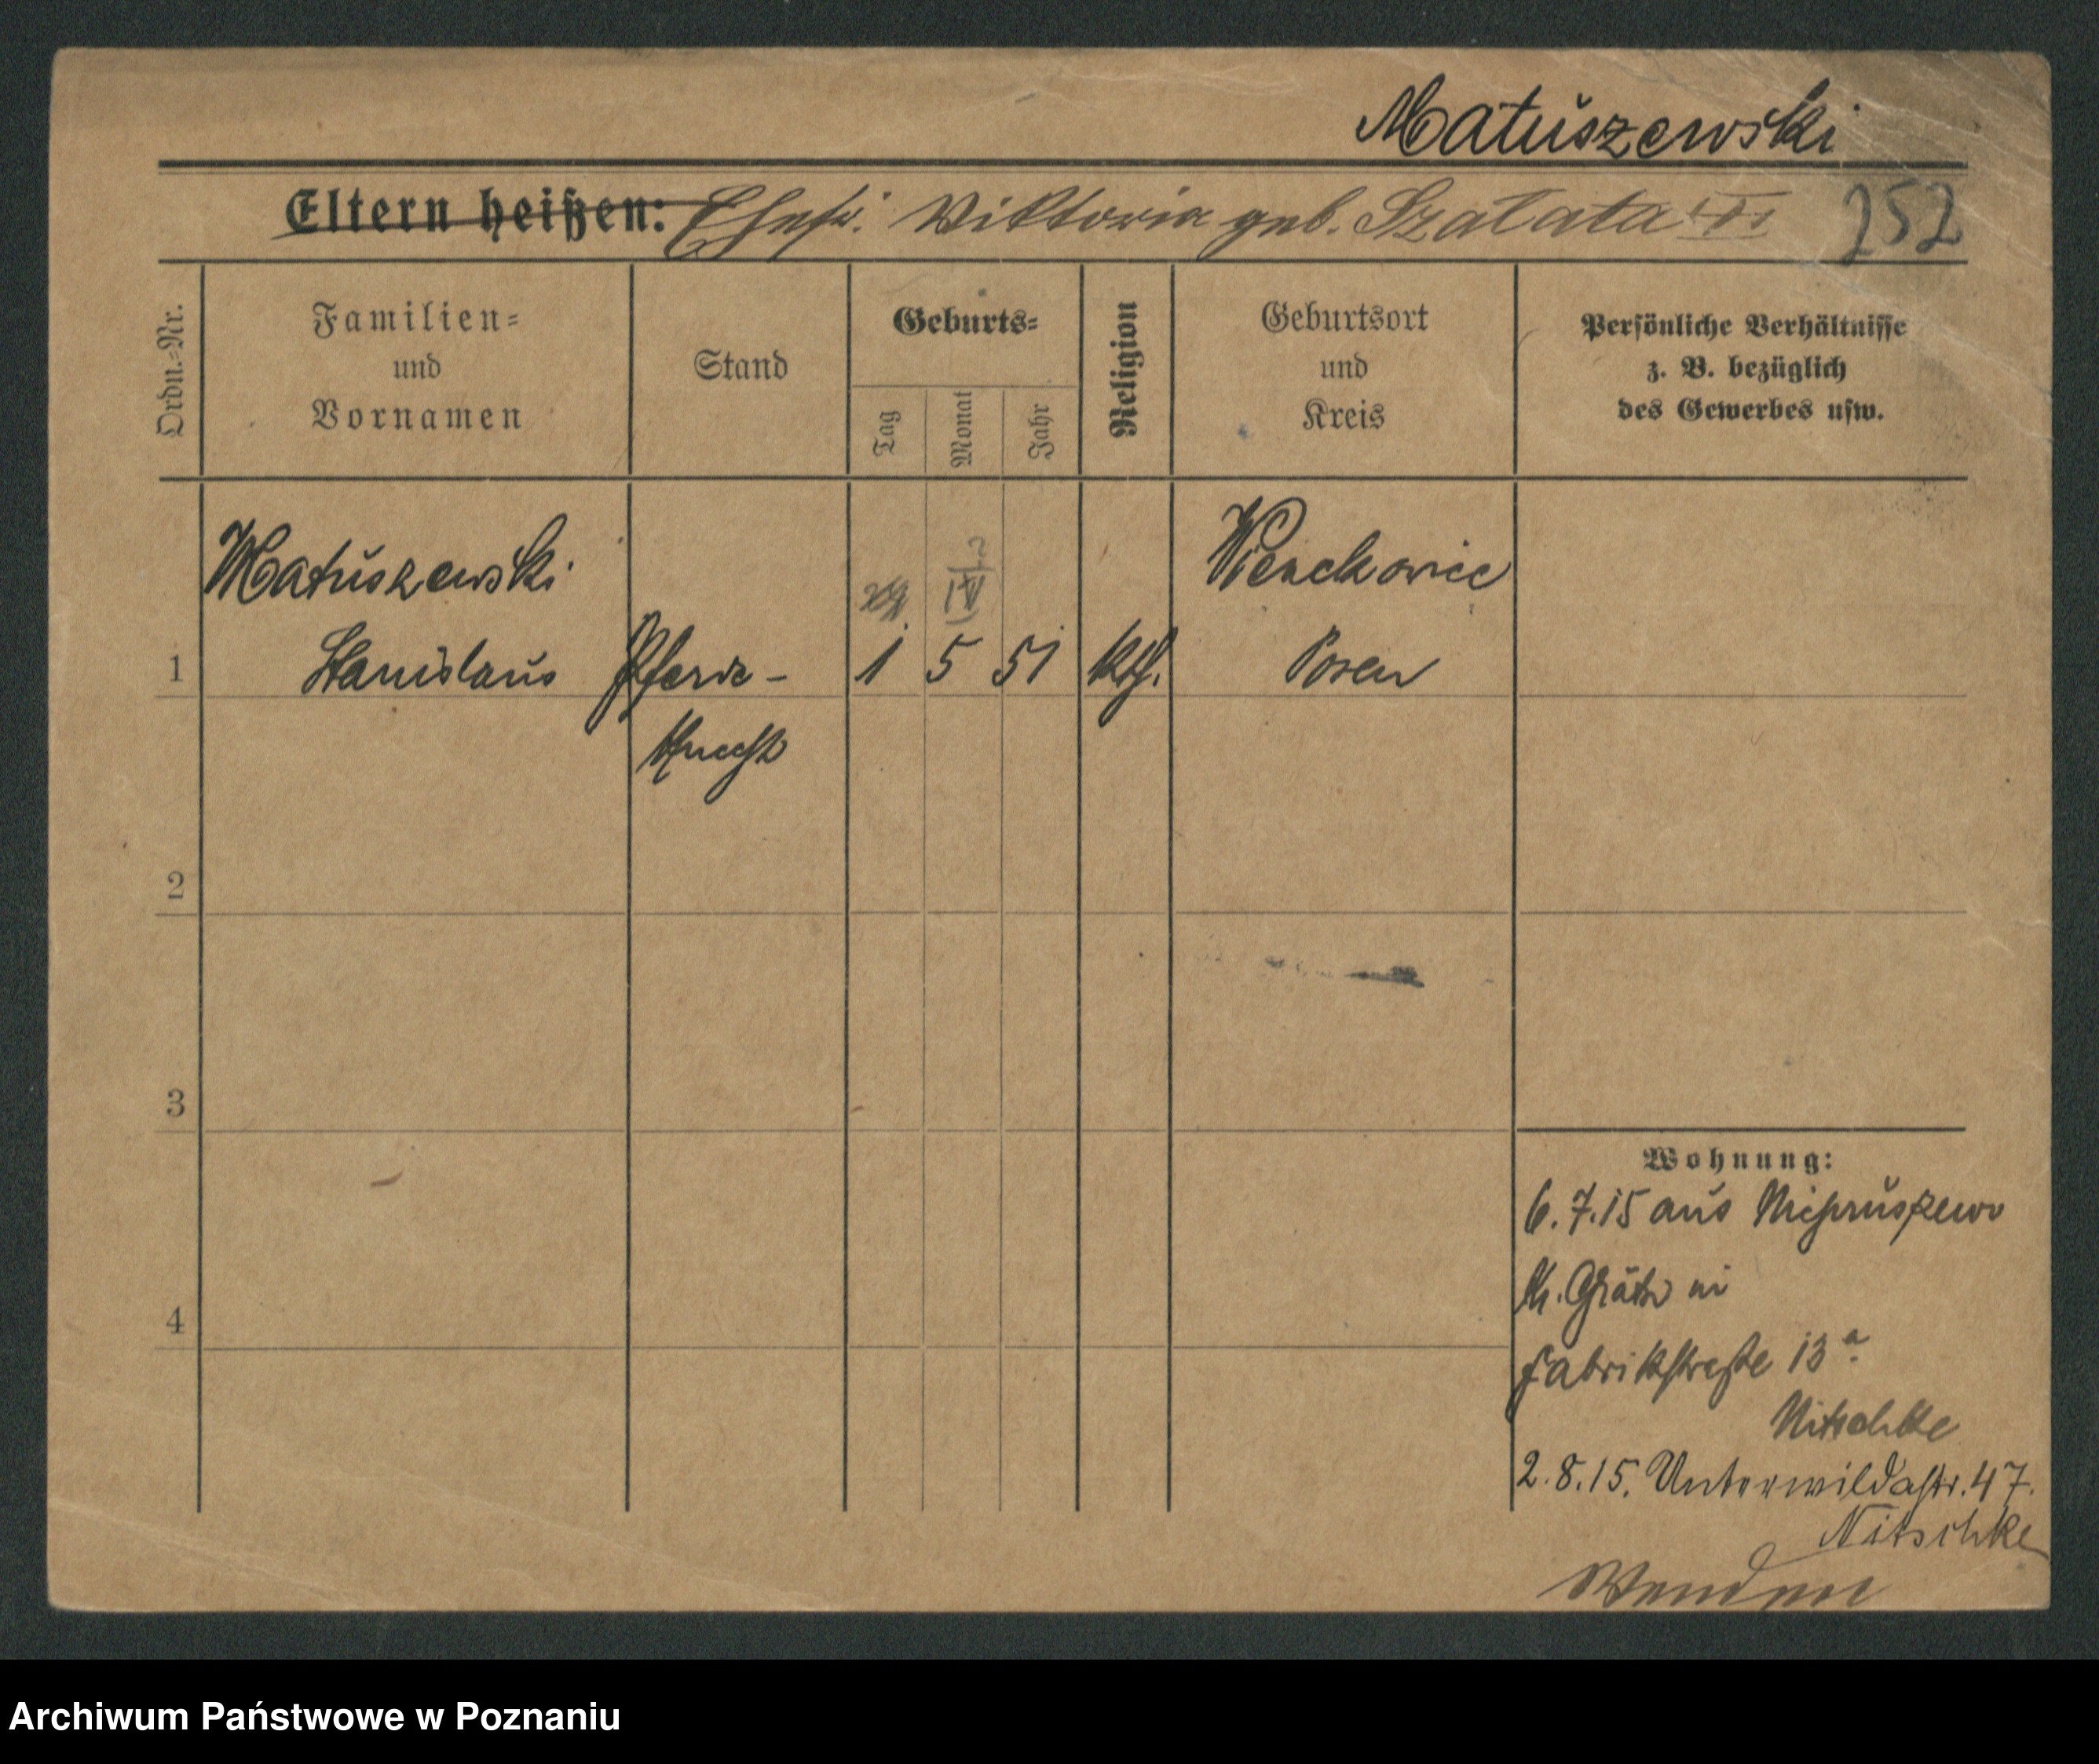 Matuszewski
Eltern heißen: Ehefr. Viktoria geb. Szalata
252
Ordn.-Nr.
Familien-
und
Vornamen
Stand
Geburts-
Tag
Monat
Jahr
Religion
Geburtsort
und
Kreis
Persönliche Verhältnisse
z. B. bezüglich
des Gewerbes usw.
Matuszewski
Stanislaus
Pferde-
Knecht
1 5 51
kth.
Posen
1
2
3
4
Wohnung:
6.7.15 aus Niepruszewo
Kr. Grätz in
Fabrikstraße 13a
Nitschke
2.8.15. Unterwildastr. 47.
Nitschke
Wenden
Archiwum Państwowe w Poznaniu